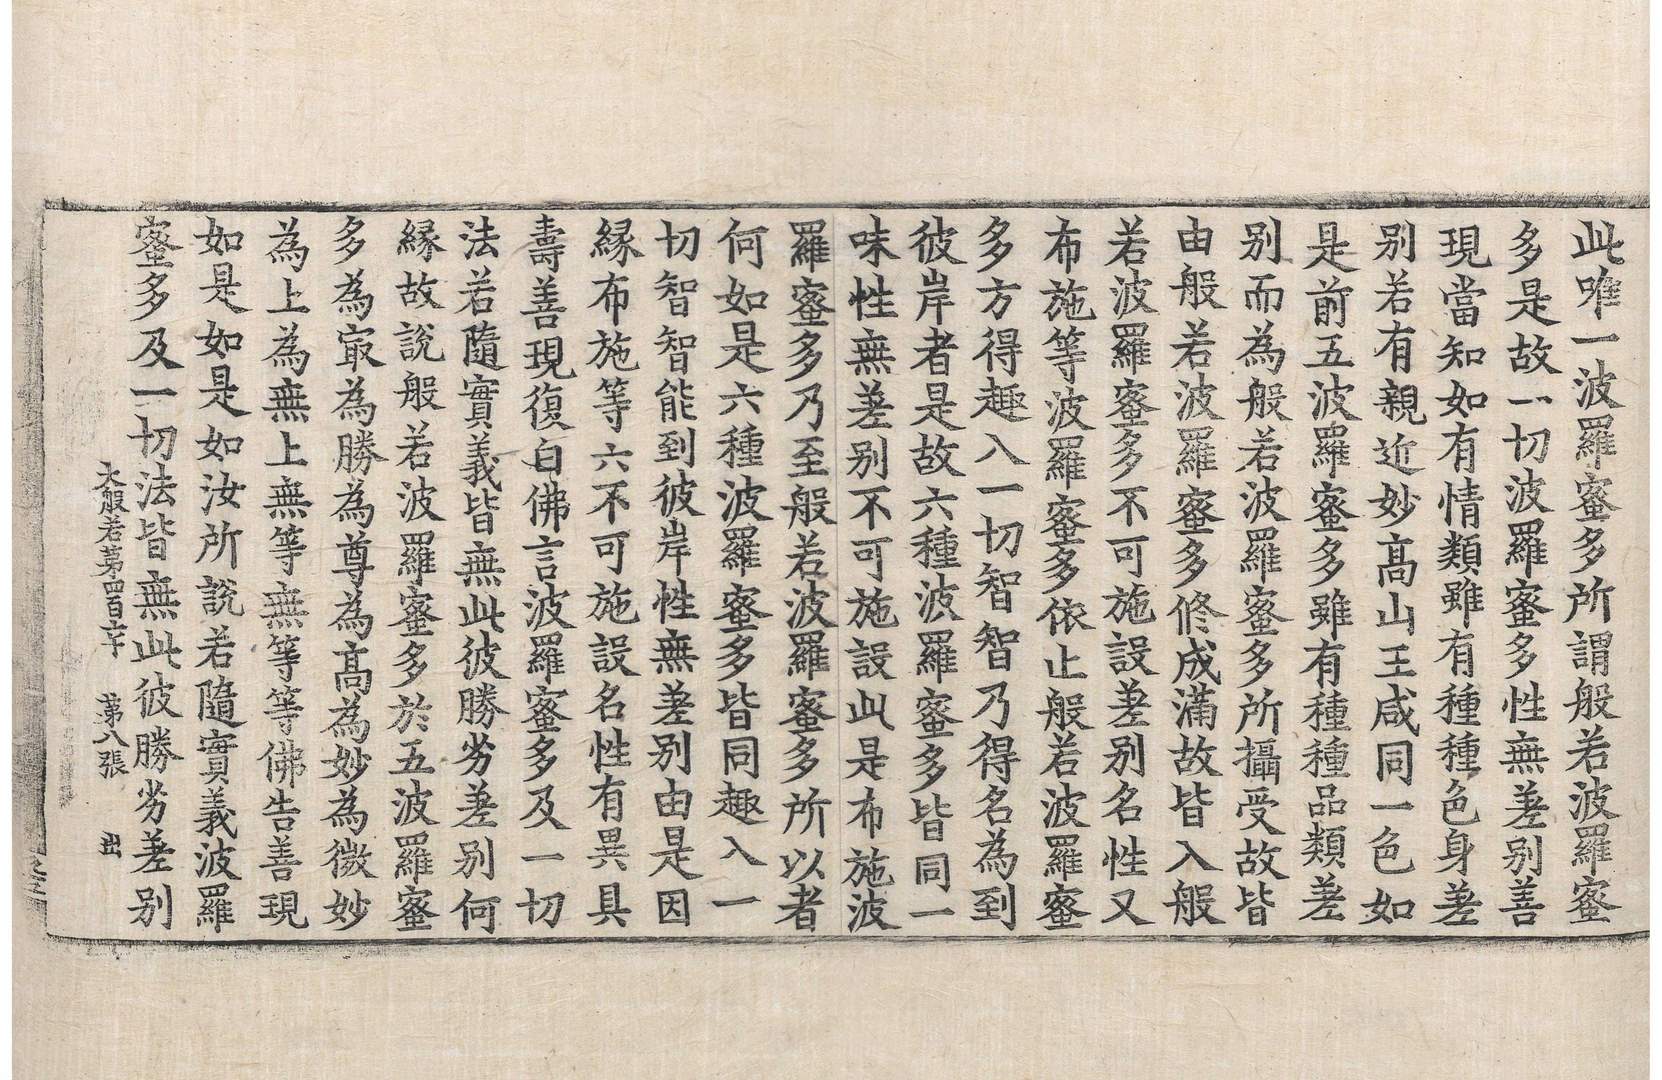 此唯一波羅蜜多所謂般若波羅蜜
多是故一切波羅蜜多性無差别善
現當知如有情類雖有種種色身差
别若有親近妙高山王咸同一色如
是前五波羅蜜多雖有種種品類差
别而為般若波羅蜜多所攝受故皆
由般若波羅蜜多修成滿故皆入般
若波羅蜜多不可施設差别名性又
布施等波羅蜜多依止般若波羅蜜
多方得趣入一切智智乃得名為到
彼岸者是故六種波羅蜜多皆同一
味性無差别不可施設此是布施波
羅蜜多乃至般若波羅蜜多所以者
何如是六種波羅蜜多皆同趣入一
切智智能到彼岸性無差别由是因
緣布施等六不可施設名性有異具
壽善現復白佛言波羅蜜多及一切
法若隨實義皆無此彼勝劣差别何
緣故說般若波羅蜜多於五波羅蜜
多為㝡為勝為尊為高為妙為微妙
為上為無上無等無等等佛告善現
如是如是如汝所說若隨實義波羅
蜜多及一切法皆無此彼勝劣差别
大般若第四百六十 第八張 出